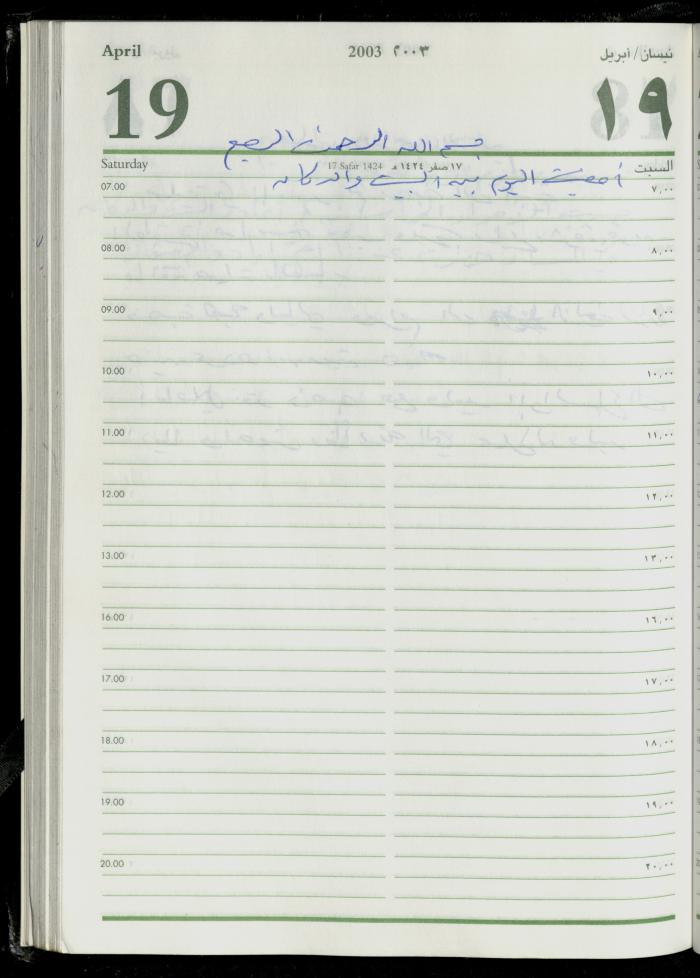 April 2003 ٢٠٠٣ نيسان/أبريل
19 ١٩
بسم الله الرحمن الرحيم
Saturday 17 Safar 1424 ١٧ صفر ١٤٢٤ هـ السبت
أمضيت اليوم بين البيت والدكان
07.00 ٧,٠٠
08.00 ٨,٠٠
09.00 ٩,٠٠
10.00 ١٠,٠٠
11.00 ١١,٠٠
12.00 ١٢,٠٠
13.00 ١٣,٠٠
16.00 ١٦,٠٠
17.00 ١٧,٠٠
18.00 ١٨,٠٠
19.00 ١٩,٠٠
20.00 ٢٠,٠٠